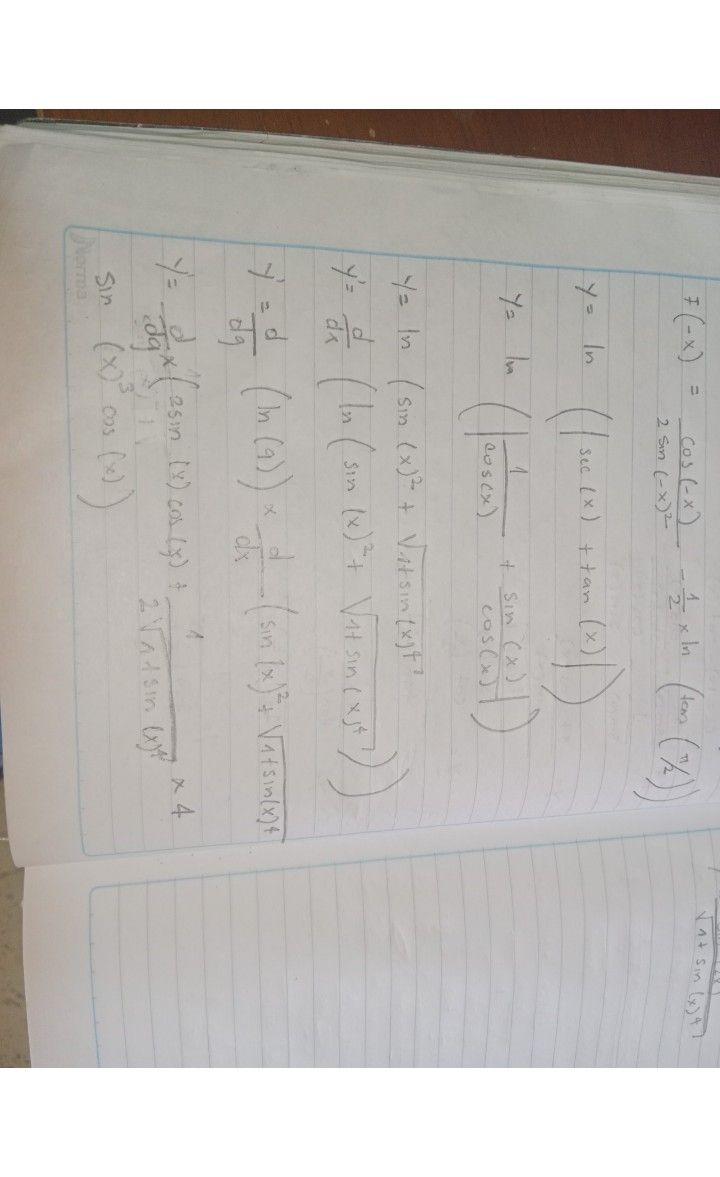 f(-x) = cos(-x) / 2 sin(-x)² - 1/2 x ln (tan (π/2))
y = ln (|sec(x) + tan(x)|)
y = ln (|1/cos(x) + sin(x)/cos(x)|)
y = ln (sin(x)² + √1+sin(x)⁴
y' = d/dx (ln (sin(x)² + √1+sin(x)⁴))
y' = d/dg (ln(g)) x d/dx (sin(x)² + √1+sin(x)⁴
y' = d/dg x (2sin(x) cos(x) + 1 / 2√1+sin(x)⁴ x 4
sin (x)³ cos(x))
Norma
√1+sin(x)⁴